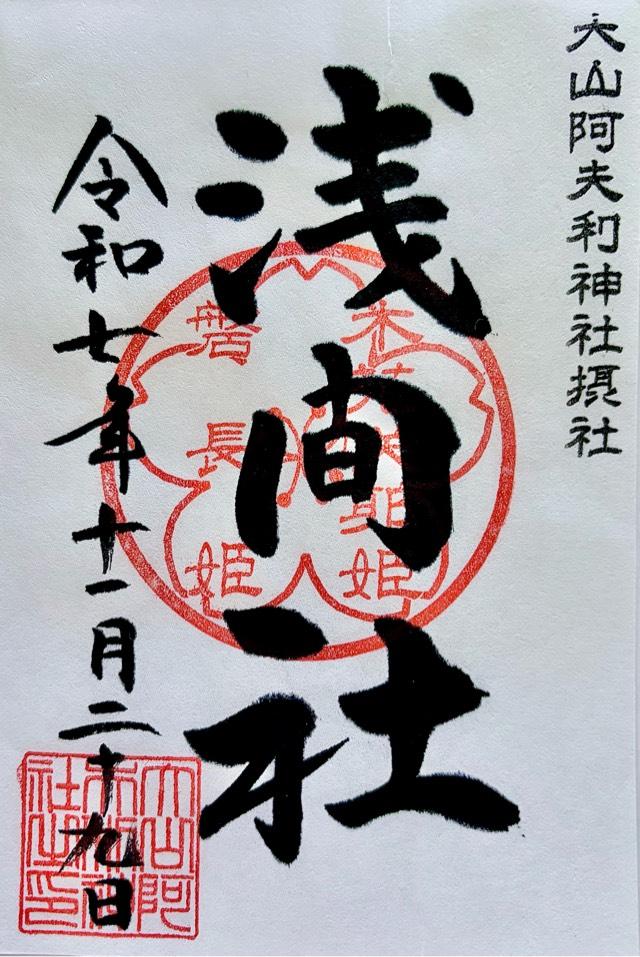 大山阿夫利神社摂社
浅間社
木花咲耶姫
磐長姫
令和七年十一月二十九日
大山阿
夫利神
社之印